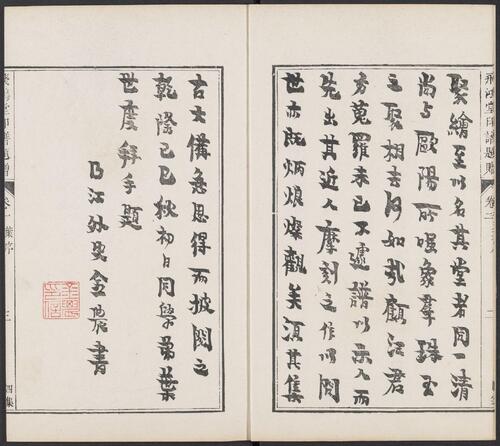 飛鴻堂印譜題贈
聚繪至以名其堂者同一清
尚与歐陽所嘔象犀珠玉
之聚相去何如哉顧江君
旁蒐羅未已不遽譜以示人而
先出其近人摩刻之作以問
世亦既炳烺燦觀美須其集
古大備急思得而披閱之
乾隆己巳秋初日同學弟葉
世度拜手題
乃江外史金農書
卷一 葉序
三
四集